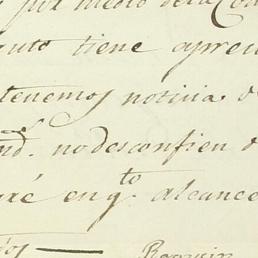 por medio de la Con
tiene apreci
tenemos noticia. d
md. no desconfien d
ré en q.to alcance